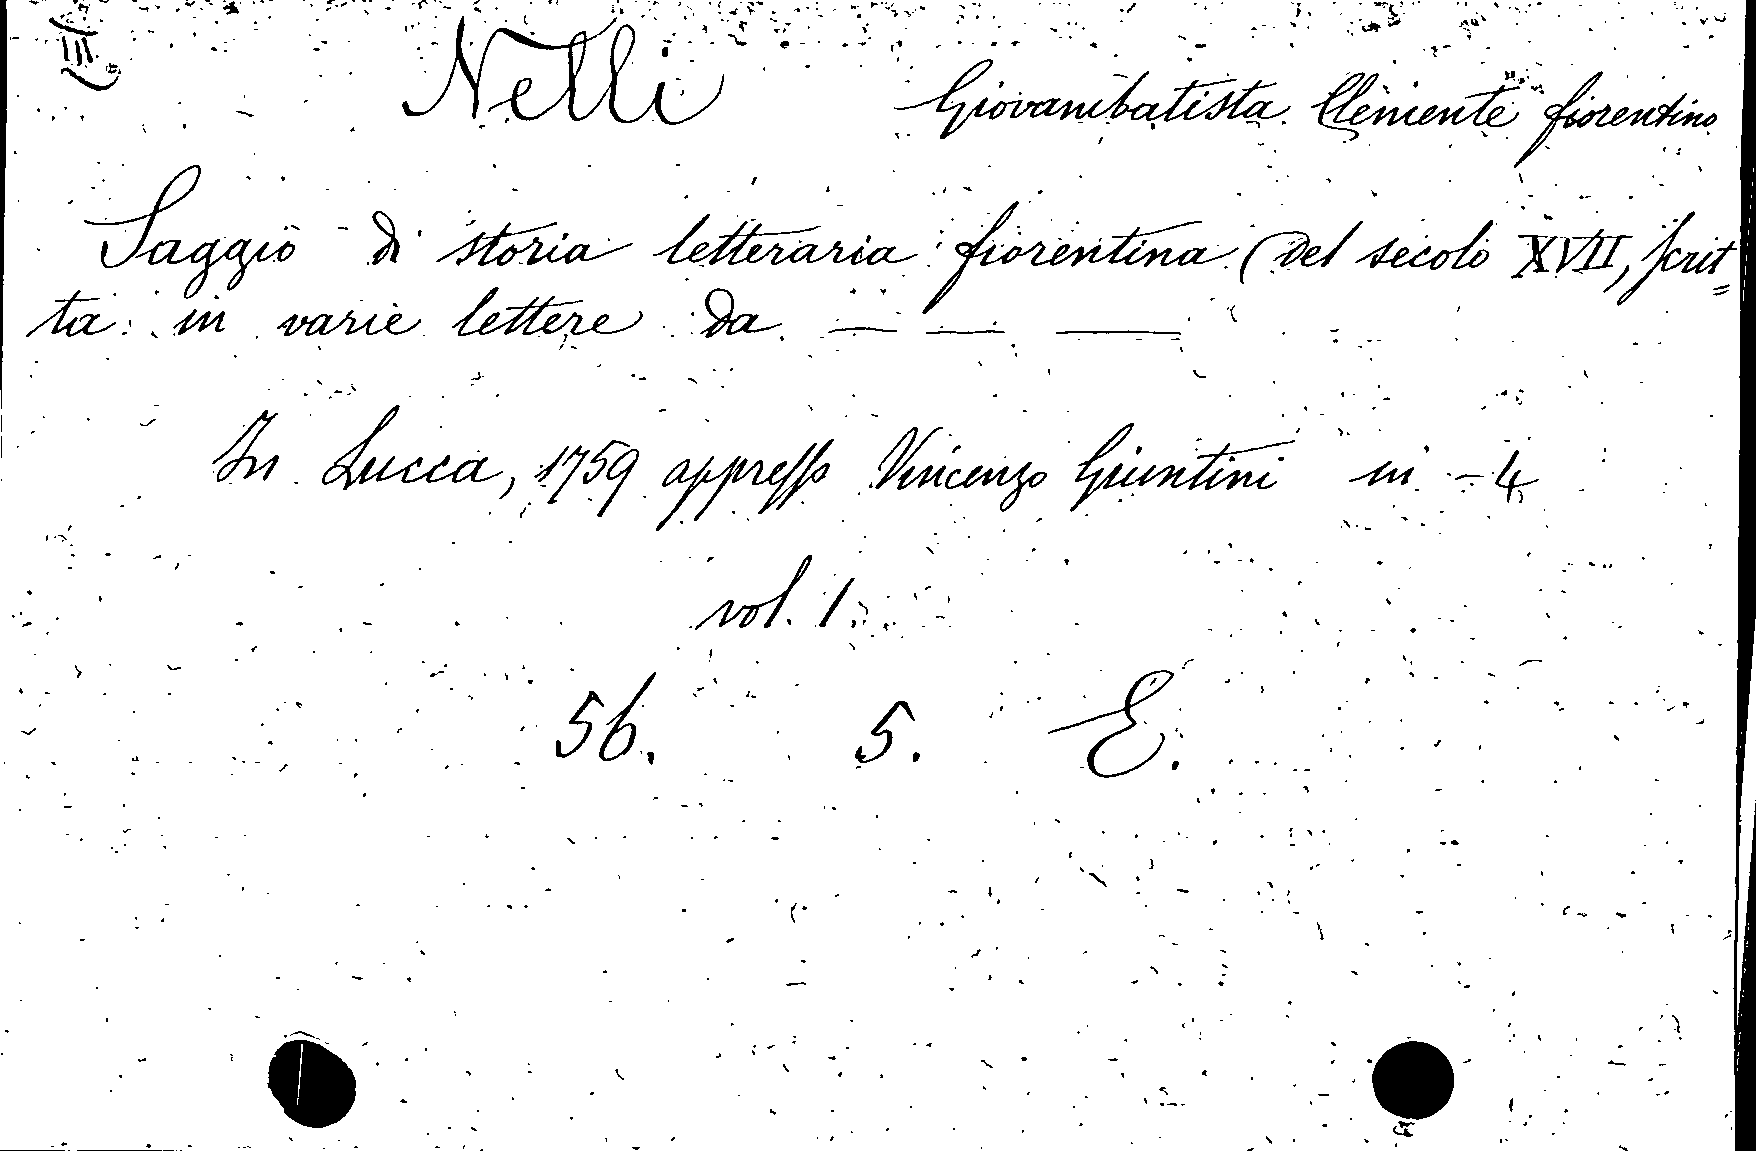 III
Nelli Giovanibatista Clemente fiorentino
Saggio di storia letteraria fiorentina (del secolo XVII, scrit=
ta in varie lettere da — — —
In Lucca, 1759 appresso Vincenzo Giuntini in-4
vol. 1.
56. 5. E.